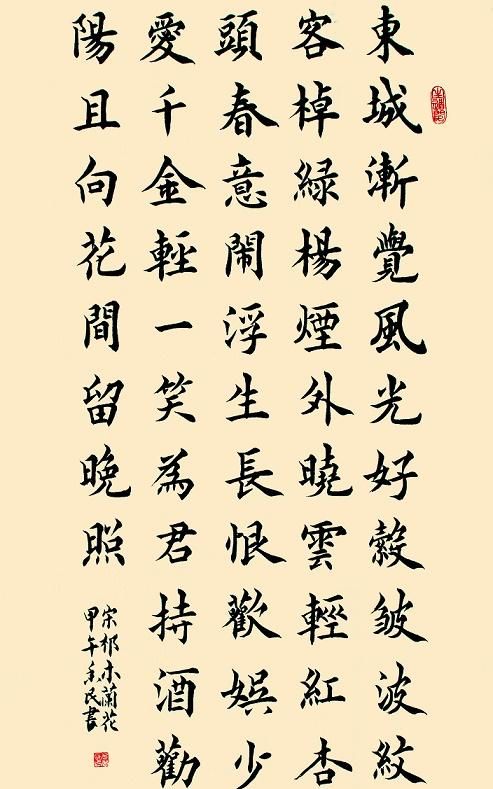 東城漸覺風光好縠皺波紋
客棹緑楊煙外曉雲輕紅杏
頭春意鬧浮生長恨歡娛少
愛千金輕一笑為君持酒勸
陽且向花間留晚照
宋祁木蘭花
甲午民書